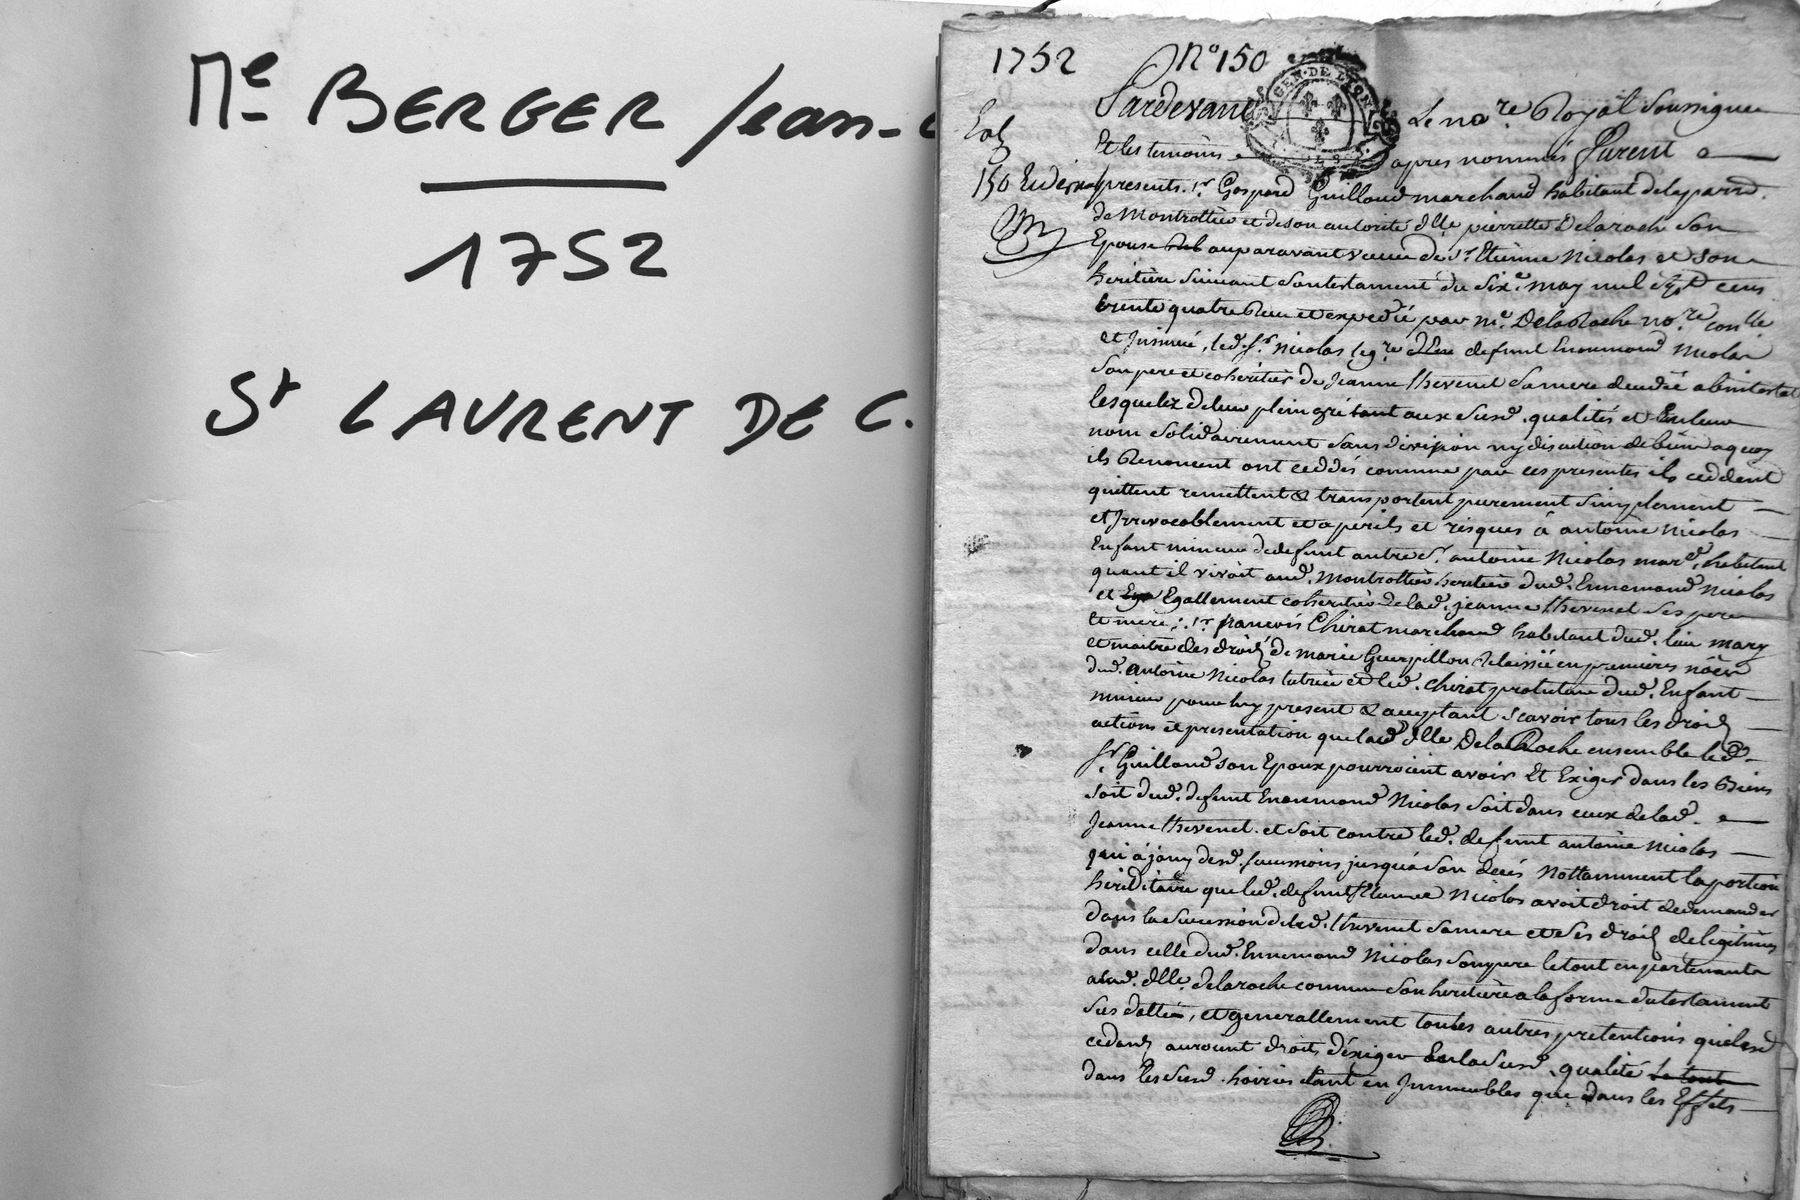 Me BERGER Jean-C
1752
St LAURENT DE C.
1752 No 150
GEN·DE LYON
Pardevant Le nore Royal Soussigné
Et les temoins apres nommés furent
presents sr Gaspard Guilloud marchand habitant de la parr.
de Montrottier et de son autorité dlle pierrette Delaroche son
Epouse auparavant veuve de sr Etienne Nicolas et son
heritiere suivant son testament du six.e may mil sept cens
trente quatre Receu et expedié par me. DelaRoche nore
et Jnsinué, led. sr. Nicolas defunt Ennemond Nicolas
son pere et coheritier de Jeanne thevenet sa mere decedée abintestat
lesquelz de leur plein gré tant aux susd. qualités et En leur
nom solidairement sans division ny discution de biens a quoy
ils Renoncent ont ceddés comme par ces presentes ils ceddent
quittent remettent & transportent purement simplement
et Jrrevocablement et a perils et risques à antoine Nicolas
Enfant mineur de defunt autre sr antoine Nicolas mard. habitant
quant il vivoit aud. Montrottier heritier dud. Ennemond Nicolas
et Egallement coheritier de lad. jeanne thevenet ses pere
et mere; sr francois Chirat marchand habitant dud. lieu mary
et maitre des droitz de marie Guerpillon delaissée en premieres nôces
dud. antoine Nicolas tutrice et led. Chirat protuteur dud. Enfant
mineur pour luy present & acceptant scavoir tous les droitz
actions et presentation que lad. dlle DelaRoche ensemble led.
sr. Guilloud son Epoux pourroient avoir Et Exiger dans les Biens
soit dud. defunt Ennemond Nicolas soit dans ceux de lad.
Jeanne thevenet et soit contre led. defunt antoine Nicolas
qui à jouy desd. sucessions jusqu'à son decés Nottamment la portion
hereditaire que led. defunt Etienne Nicolas avoit droit de demander
dans la sucession de lad. thevenet sa mere et ses droitz de legitimes
dans celle dud. Ennemond Nicolas son pere le tout apartenant
alad. dlle. delaroche comme son heritiere a la forme du testament
sus datté, et generallement toutes autres pretentions que lesd
cedantz auroient droit d'exiger En la susd. qualité le tout
dans les susd. hoiries tant en Jmmeubles que dans les Effets